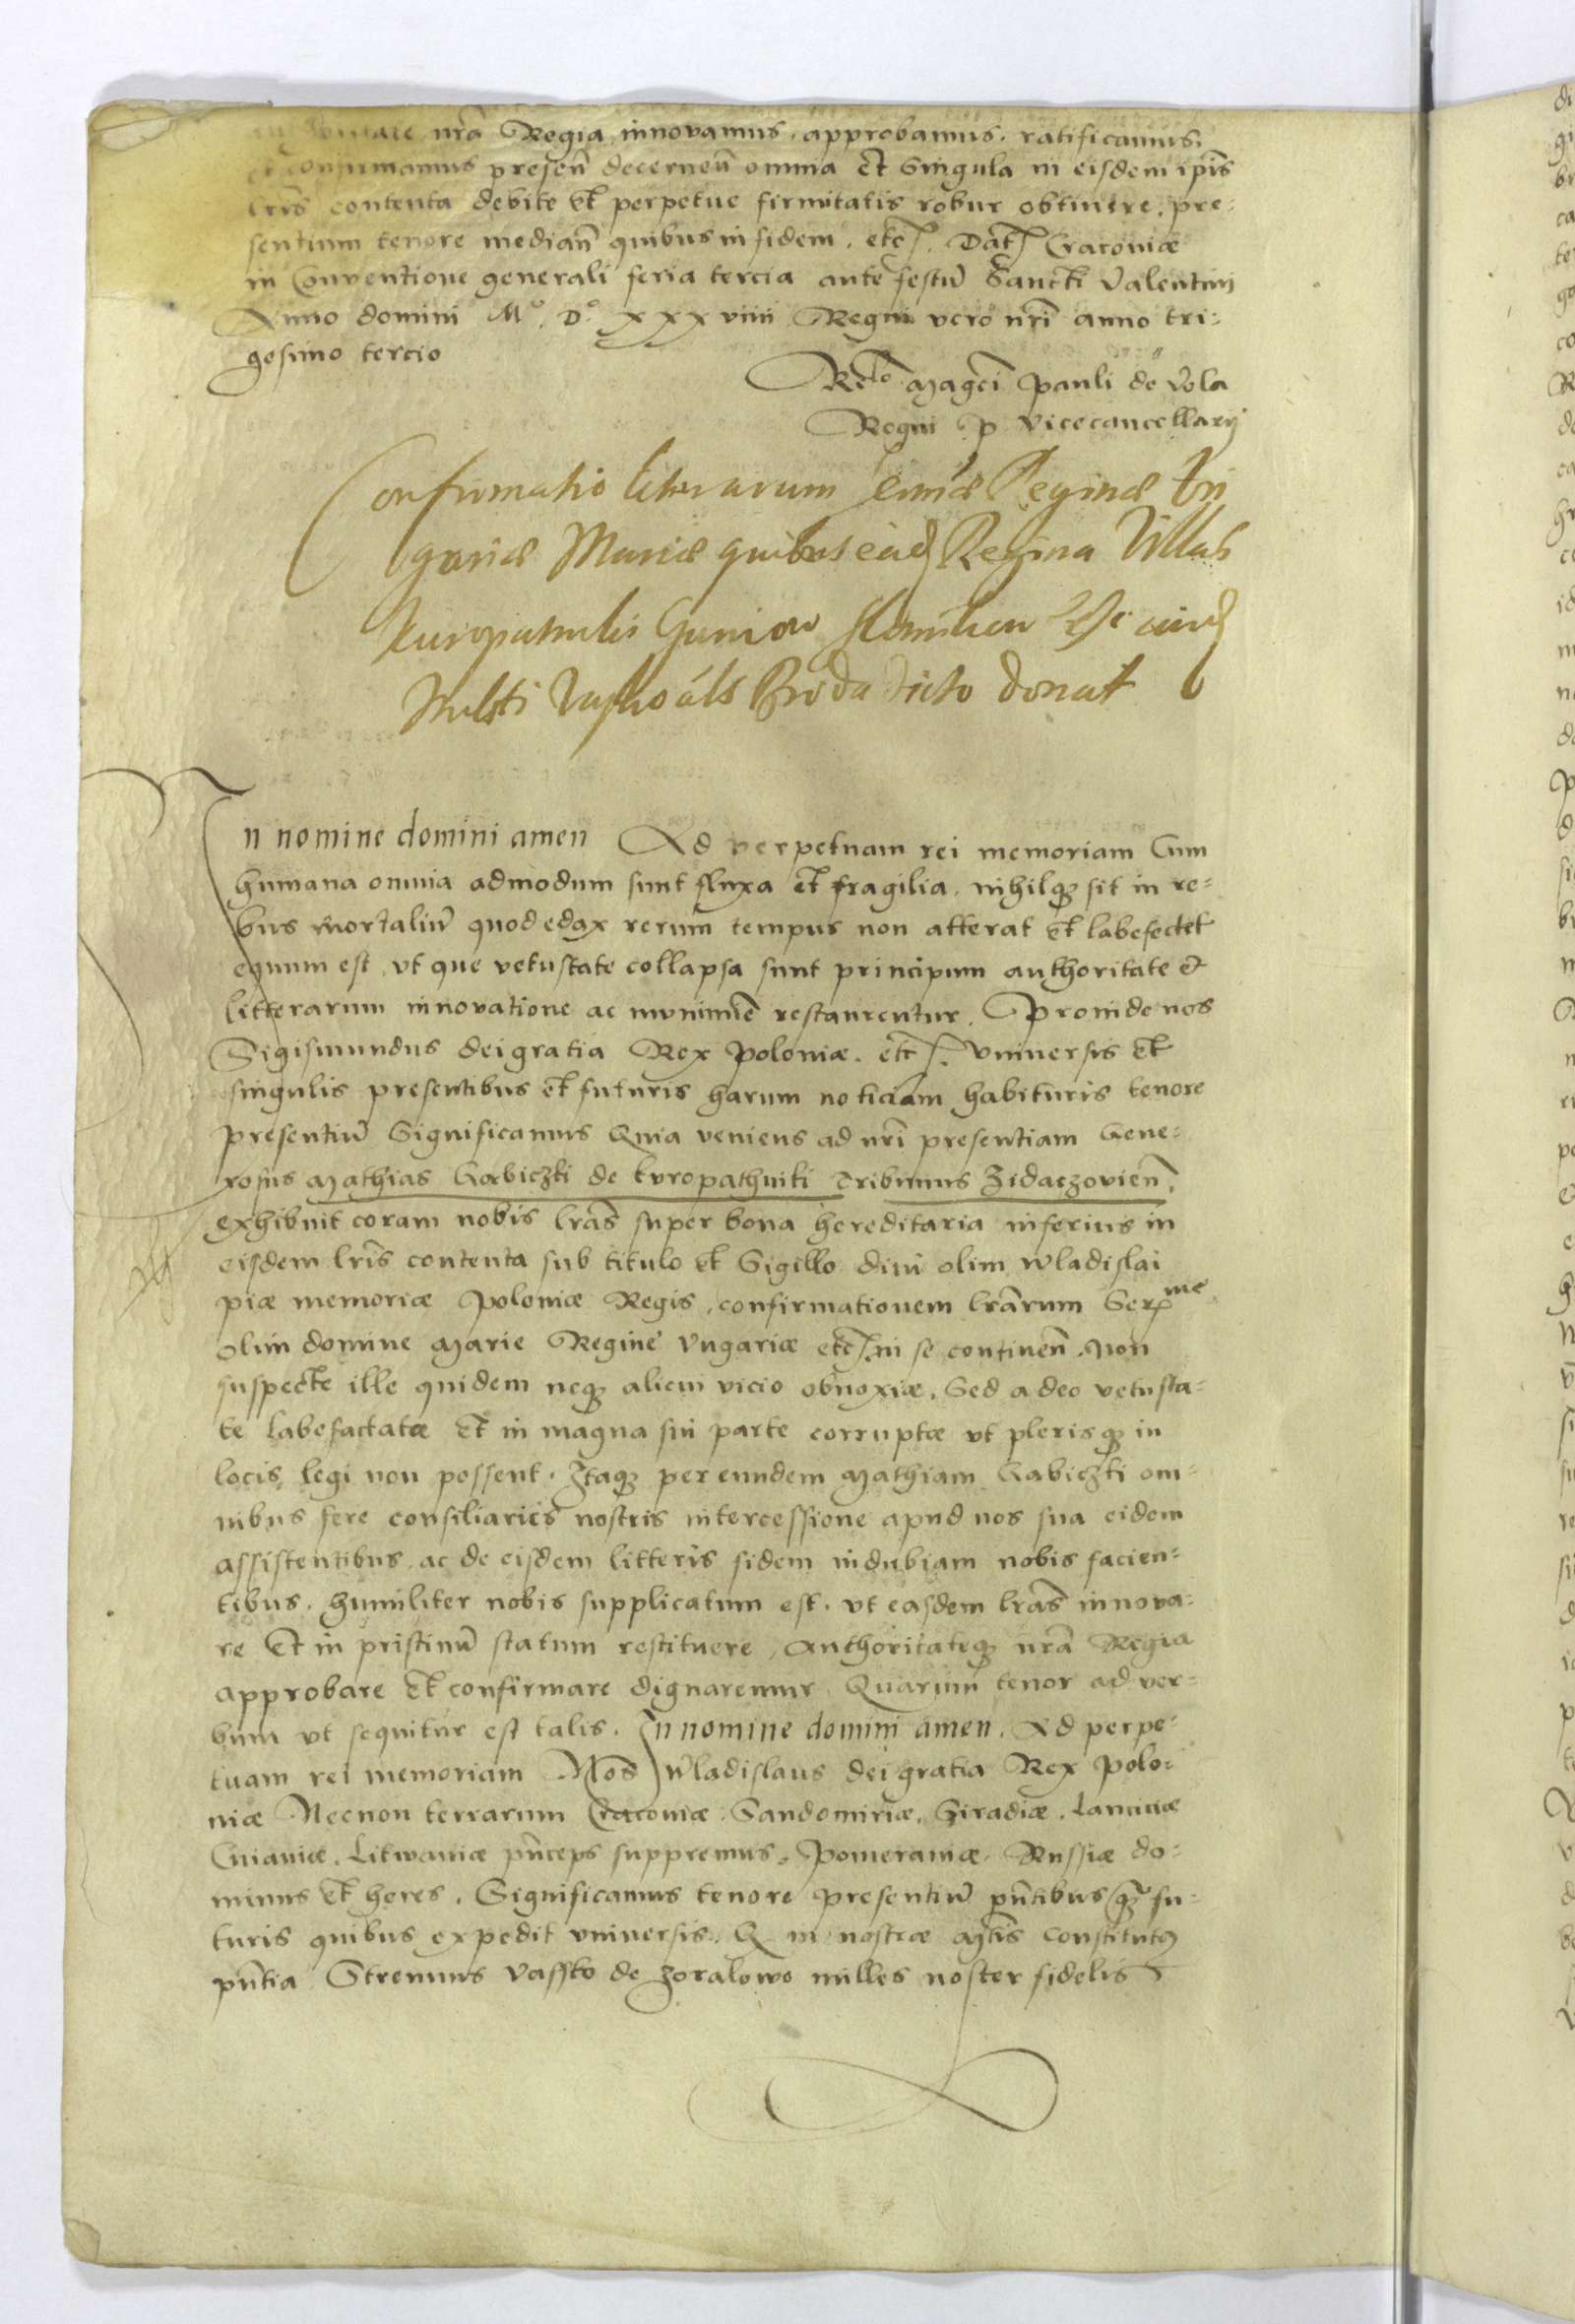 nrã Regia innovamus. approbamus. ratificamus.
confirmamus preseñ decerneñ omnia et Singula in eisdem ipis
lris contenta debite et perpetue firmitatis robur obtinere. pre:
sentium tenore mediañ quibus in fidem. etc. Dat Cracoviæ
in Conventione generali feria tercia ante festũ Sancti Valentini
Anno domini Mº. Dº. XXXviiii Regni vero nrĩ anno tri:
gesimo tercio
Relo Magci Pauli de Vola
Regni P Vicecancellarij
Confirmatio literarum Reginæ Vn
gariæ Mariæ quibus ead Regina Villas
Kuropatniki
dicto donat
In nomine domini amen Ad perpetuam rei memoriam Cum
humana omnia admodum sunt fluxa et fragilia. nihilq sit in re=
bus mortaliũ quod edax rerum tempus non atterat et labefectet
equum est vt que vetustate collapsa sunt principum authoritate et
litterarum innovatione ac munimiẽ restaurentur. Proinde nos
Sigismundus dei gratia Rex Poloniæ. etc. Vniversis et
singulis presentibus et futuris harum noticiam habituris tenore
presentiũ Significamus Quia veniens ad nrĩ presentiam Gene=
rosus Mathias Gabiczki de Kvropathniki Tribunus Zidaczovieñ.
exhibuit coram nobis lras super bona hereditaria inferius in
eisdem lris contenta sub titulo et Sigillo divi olim Wladislai
piæ memoriæ Poloniæ Regis, confirmationem lrarum Serme
olim domine Marie Regine Vngariæ etc. in se contineñ. Non
suspecte ille quidem neq alicui vicio obnoxiæ. Sed adeo vetusta=
te labefactatæ et in magna sui parte corruptæ vt plerisq in
locis legi non possent. Itaq per eundem Mathiam Gabiczki om=
nibus fere consiliariis nostris intercessione apud nos sua eidem
assistentibus. ac de eisdem litteris fidem indubiam nobis facien=
tibus. humiliter nobis supplicatum est. vt easdem lras innova=
re et in pristinũ statum restituere, Authoritateq nrã Regia
approbare et confirmare dignaremur Quarum tenor ad ver=
bum vt sequitur est talis. In nomine domini amen. Ad perpe=
tuam rei memoriam Nos Wladislaus dei gratia Rex Polo=
niæ Necnon terrarum Cracoviæ. Sandomiriæ. Siradiæ. Lanciciæ
Cuiaviæ. Litwaniæ pñceps suppremus. Pomeraniæ. Russiæ do=
minus et heres. Significamus tenore presentiũ pñtibus q fu=
turis quibus expedit vniversis. Q in nostræ Mtis constitutus
pñtia Strenuus Vassko de Zoralowo milles noster fidelis